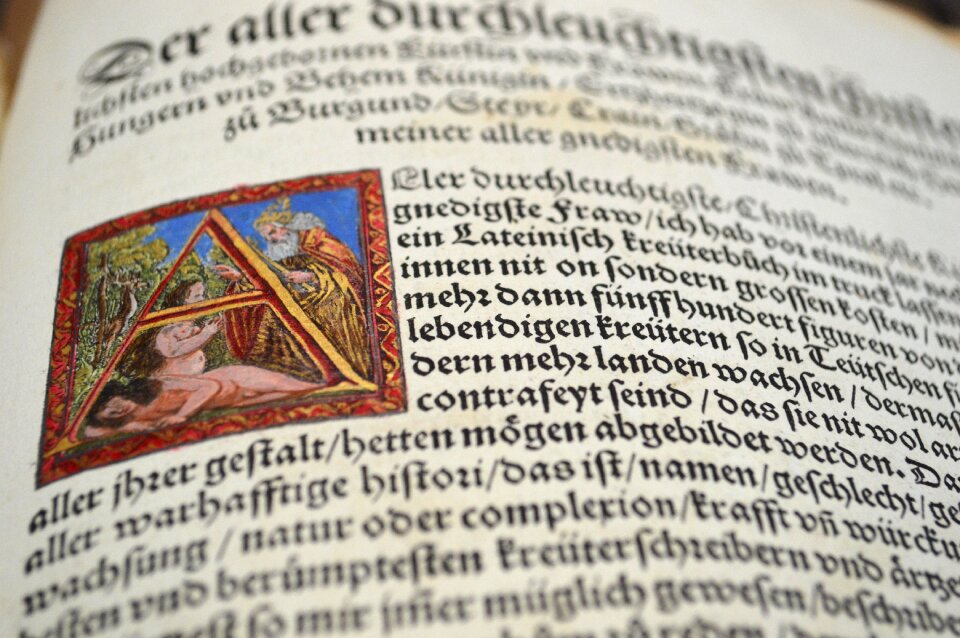 Der aller durchleuchtigsten Christe
liebsten hochgebornen Fürstin vnd Frawen
Hungern vnd Behem Künigin / 
zů Burgund / Steyr / Crain
meiner aller gnedigsten Frawen.
Aller durchleuchtigste / Christenlichste
gnedigste Fraw / ich hab vor einem jar
ein Lateinisch kreüterbůch im truck lassen
innen nit on sondern grossen kosten / 
mehr dann fünffhundert figuren von
lebendigen kreütern so in Teütschen
dern mehr landen wachsen / dermaß
contrafeyt seind / das sie nit wol
aller jhrer gestalt / hetten mögen abgebildet werden. Da
aller warhafftige histori / das ist / namen / geschlecht / ge
wachsung / natur oder complexion / krafft vñ würcku
besten vnd berümptesten kreüterschreibern vnd ärtze
so mir jm̃er müglich gewesen / beschribe